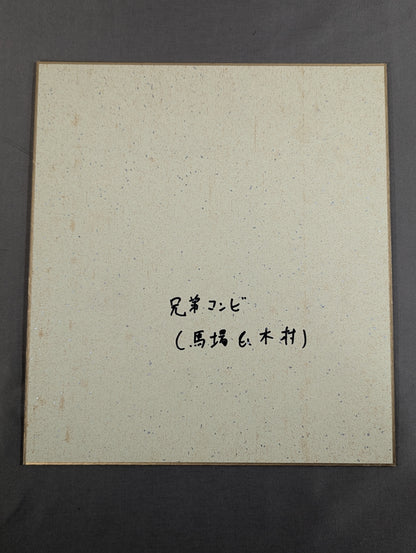 兄弟コンビ
(馬場&木村)